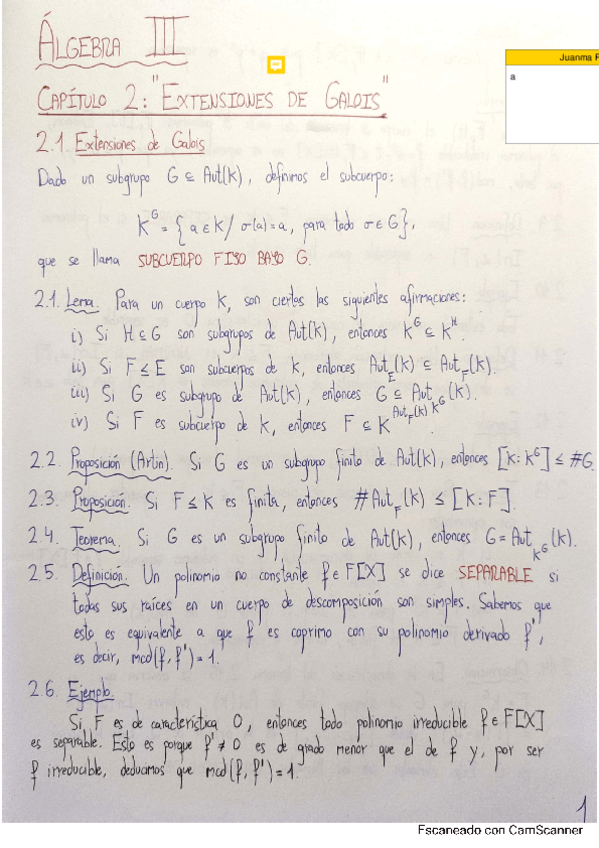 ÁLGEBRA III
Juanma F
a
CAPÍTULO 2: "EXTENSIONES DE GALOIS"
2.1. Extensiones de Galois
Dado un subgrupo G ⊆ Aut(K), definimos el subcuerpo:
K^G = { a ∈ K / σ(a) = a, para todo σ ∈ G },
que se llama SUBCUERPO FIJO BAJO G.
2.1. Lema. Para un cuerpo K, son ciertas las siguientes afirmaciones:
i) Si H ⊆ G son subgrupos de Aut(K), entonces K^G ⊆ K^H.
ii) Si F ≤ E son subcuerpos de K, entonces Aut_E(K) ⊆ Aut_F(K).
iii) Si G es subgrupo de Aut(K), entonces G ⊆ Aut_{K^G}(K).
iv) Si F es subcuerpo de K, entonces F ≤ K^{Aut_F(K)}.
2.2. Proposición (Artin). Si G es un subgrupo finito de Aut(K), entonces [K: K^G] ≤ #G.
2.3. Proposición. Si F ≤ K es finita, entonces #Aut_F(K) ≤ [K: F].
2.4. Teorema. Si G es un subgrupo finito de Aut(K), entonces G = Aut_{K^G}(K).
2.5. Definición. Un polinomio no constante f ∈ F[X] se dice SEPARABLE si
todas sus raíces en un cuerpo de descomposición son simples. Sabemos que
esto es equivalente a que f es coprimo con su polinomio derivado f',
es decir, mcd(f, f') = 1.
2.6. Ejemplo.
Si F es de característica 0, entonces todo polinomio irreducible f ∈ F[X]
es separable. Esto es porque f' ≠ 0 es de grado menor que el de f y, por ser
f irreducible, deducimos que mcd(f, f') = 1.
1
Escaneado con CamScanner